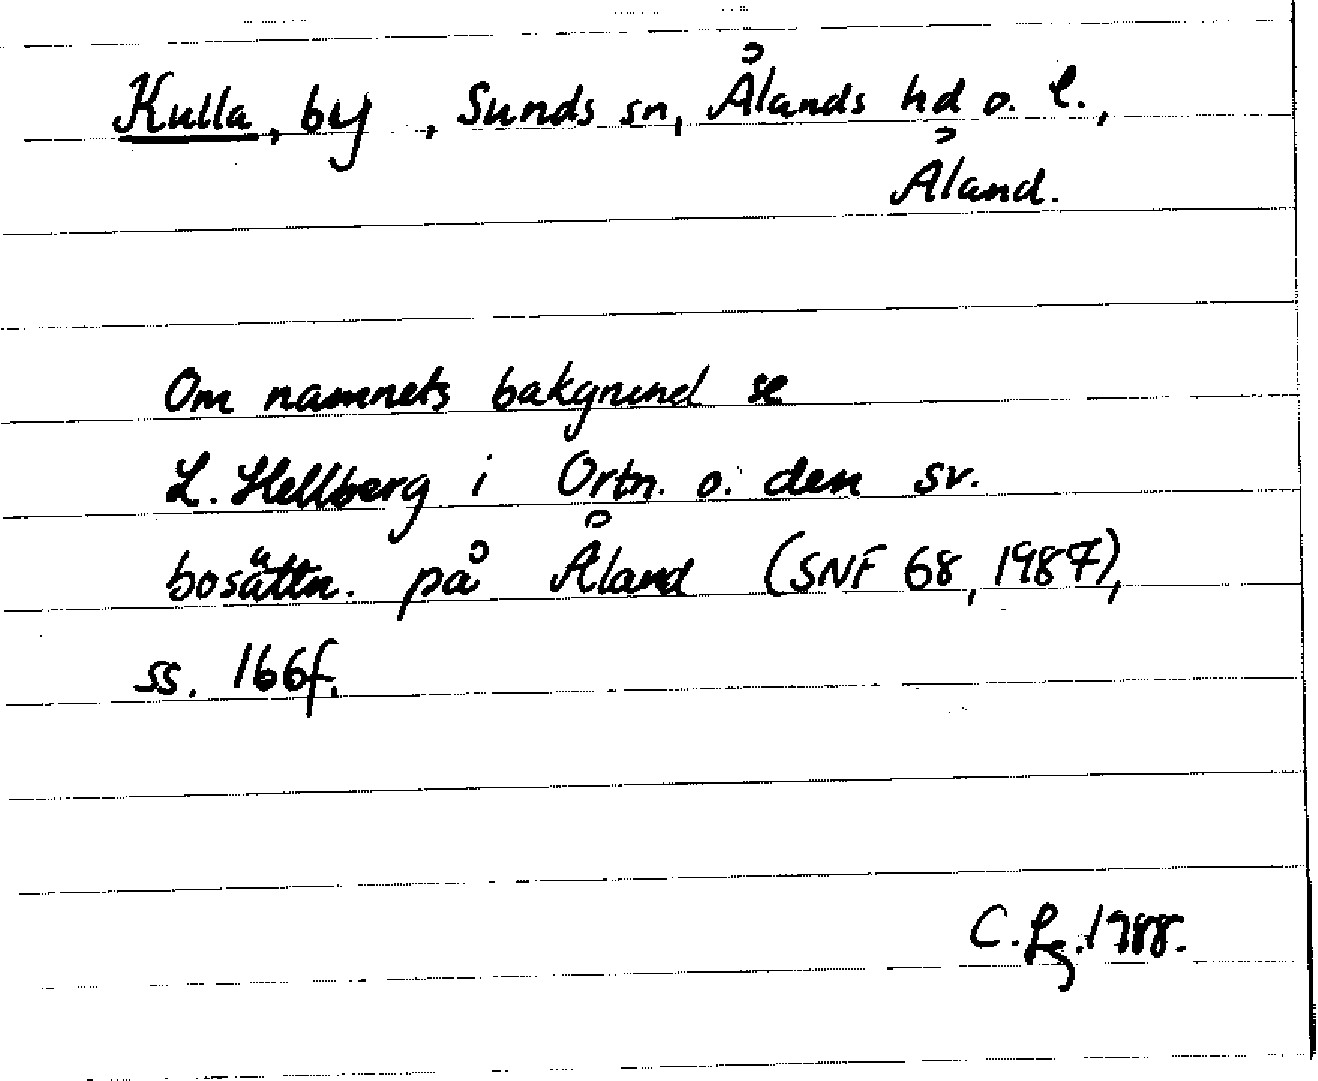 Kulla, by , Sunds sn, Ålands hd o. l.,
Åland.
Om namnets bakgrund se
L. Hellberg i Ortn. o. den sv.
bosättn. på Åland (SNF 68, 1987),
ss. 166f.
C. Lg. 1988.